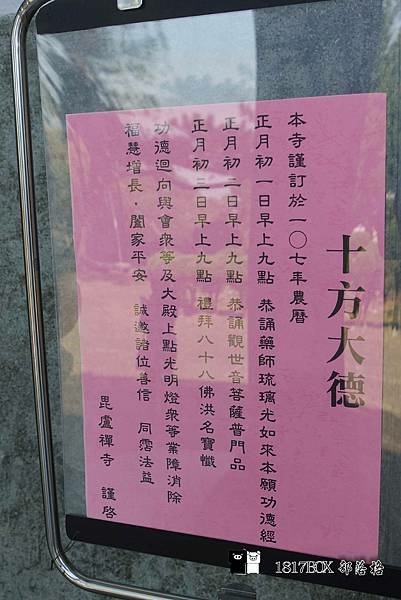 十方大德
本寺謹訂於一〇七年農曆
正月初一日早上九點 恭誦藥師琉璃光如來本願功德經
正月初二日早上九點 恭誦觀世音菩薩普門品
正月初三日早上九點 禮拜八十八佛洪名寶懺
功德迴向與會眾等及大殿上點光明燈眾等業障消除
福慧增長，闔家平安 誠邀諸位善信 同霑法益
毘盧禪寺 謹啓
1817BOX 部落格